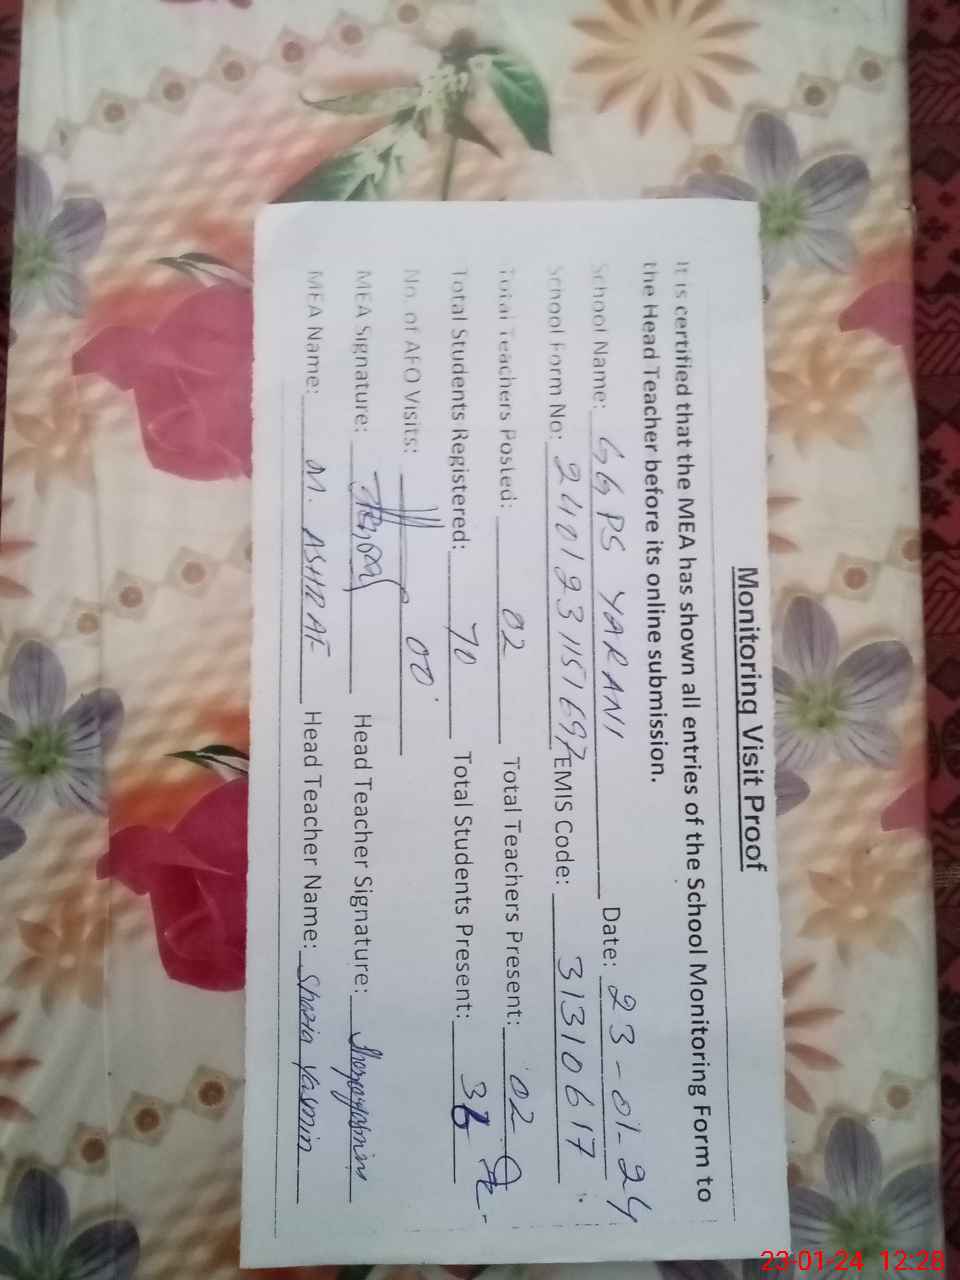 Monitoring Visit Proof
It is certified that the MEA has shown all entries of the School Monitoring Form to
the Head Teacher before its online submission.
School Name: GGPS YARANI Date: 23-01-24
School Form No: 2401231151697 EMIS Code: 31310617
Total Teachers Posted: 02 Total Teachers Present: 02
Total Students Registered: 70 Total Students Present: 36
No. of AFO Visits: 00
MEA Signature: Head Teacher Signature:
MEA Name: M. ASHRAF Head Teacher Name: Shazia Yasmin
23-01-24 12:28